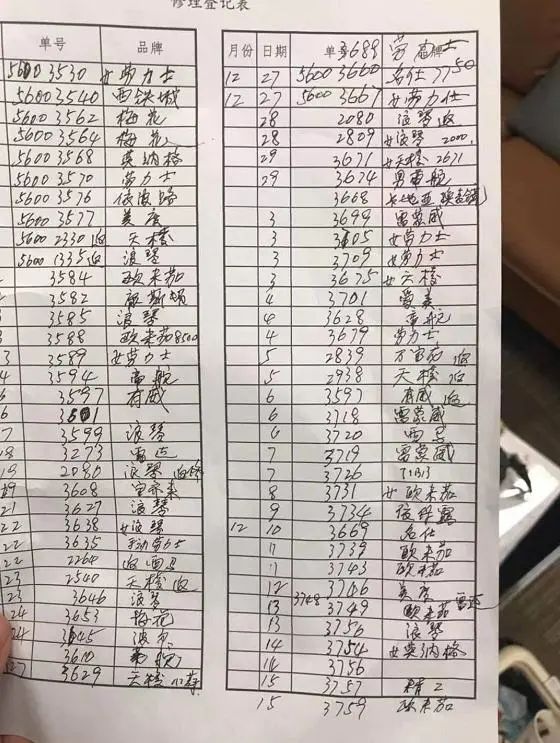 修理登记表
单号 品牌
56003530 女劳力士
56003540 西铁城
56003562 梅花
56003564 梅花
56003568 英纳格
56003570 劳力士
56003576 依波路
56003577 美度
56002330返 天梭
56001335返 浪琴
3584 欧米茄
3582
3585 浪琴
3588 欧米茄8500
3589 女劳力士
3594 帝舵
3597 有威
3599 浪琴
3273 雷达
2080 浪琴 返修
3608 宝齐来
3627 浪琴
22 3638 女浪琴
22 3635
22 2264 返
23 2540 天梭 返
23 3646 浪琴
24 3653 梅花
24 3645
3610
27 3629 天梭
月份 日期 单号 3689 劳 品牌 士
12 27 56003660 名仕7750
12 27 56003667 女劳力仕
28 2080 浪琴返
28 2809 女浪琴 2000
29 3671 女天梭 2671
29 3674 男帝舵
3668 卡地亚
3 3699 雷蒙威
3 3605 女劳力士
3 3709 女劳力士
3 3675 女天梭
4 3701 爱美
4 3628 帝舵
4 3679 劳力士
5 2839 万宝龙 返
5 2938 天梭 返
6 3597 有威 返
6 3718 雷蒙威
6 3720
7 3719 雷蒙威
7 3726
8 3731 女欧米茄
9 3734
12 10 3669 名仕
11 3739 欧米茄
11 3743 欧米茄
12 3746 美度
13 3748 3749 欧米茄 雷达
13 3756 浪琴
14 3754 女英纳格
14 3756
15 3757 精工
15 3759 欧米茄